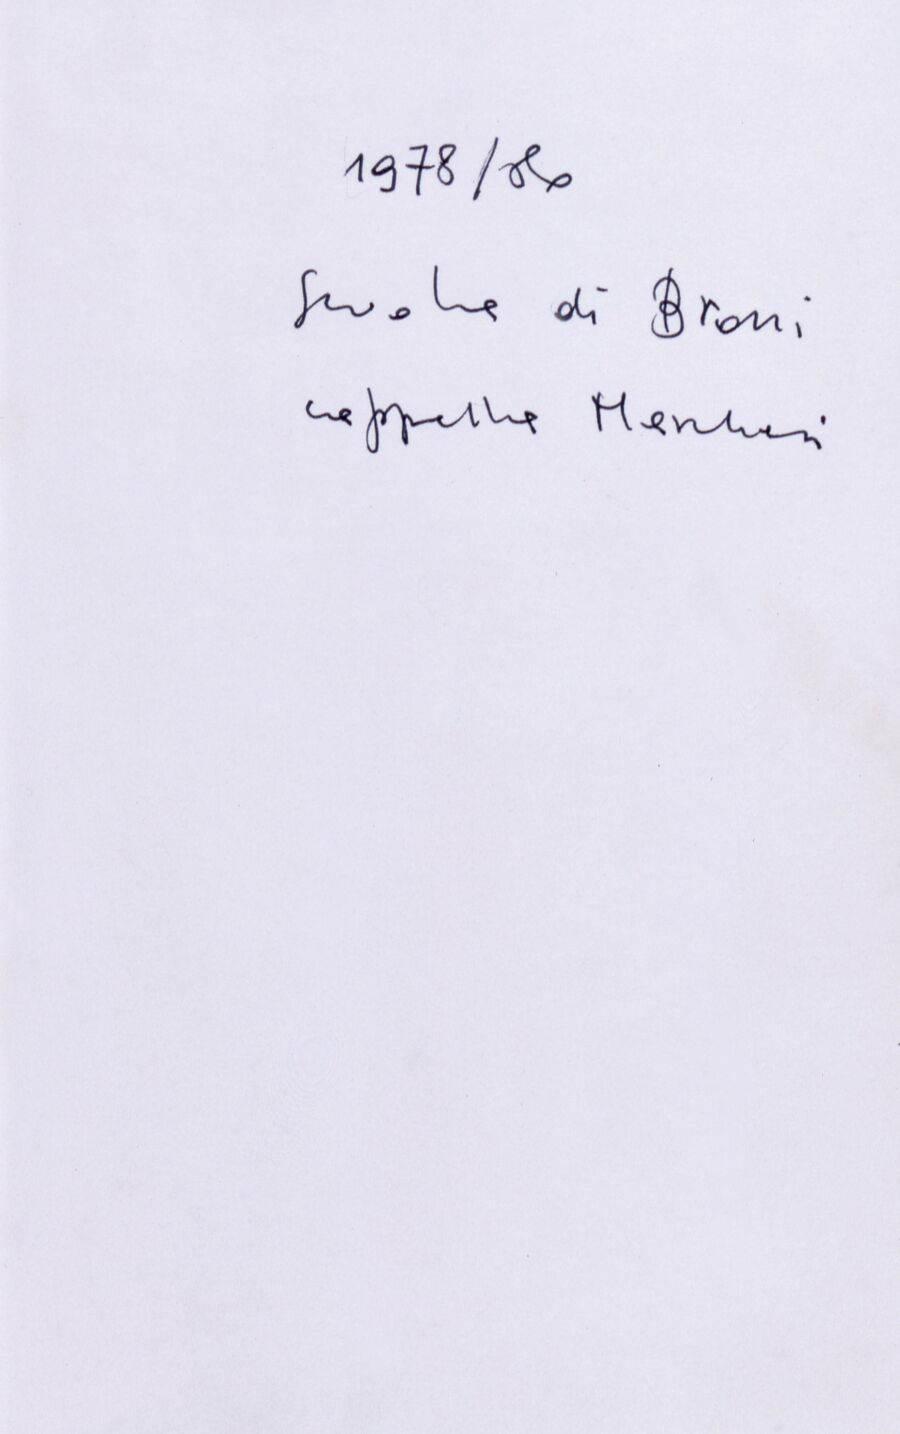 1978/80
Scuola di Broni
cappella Marchesi